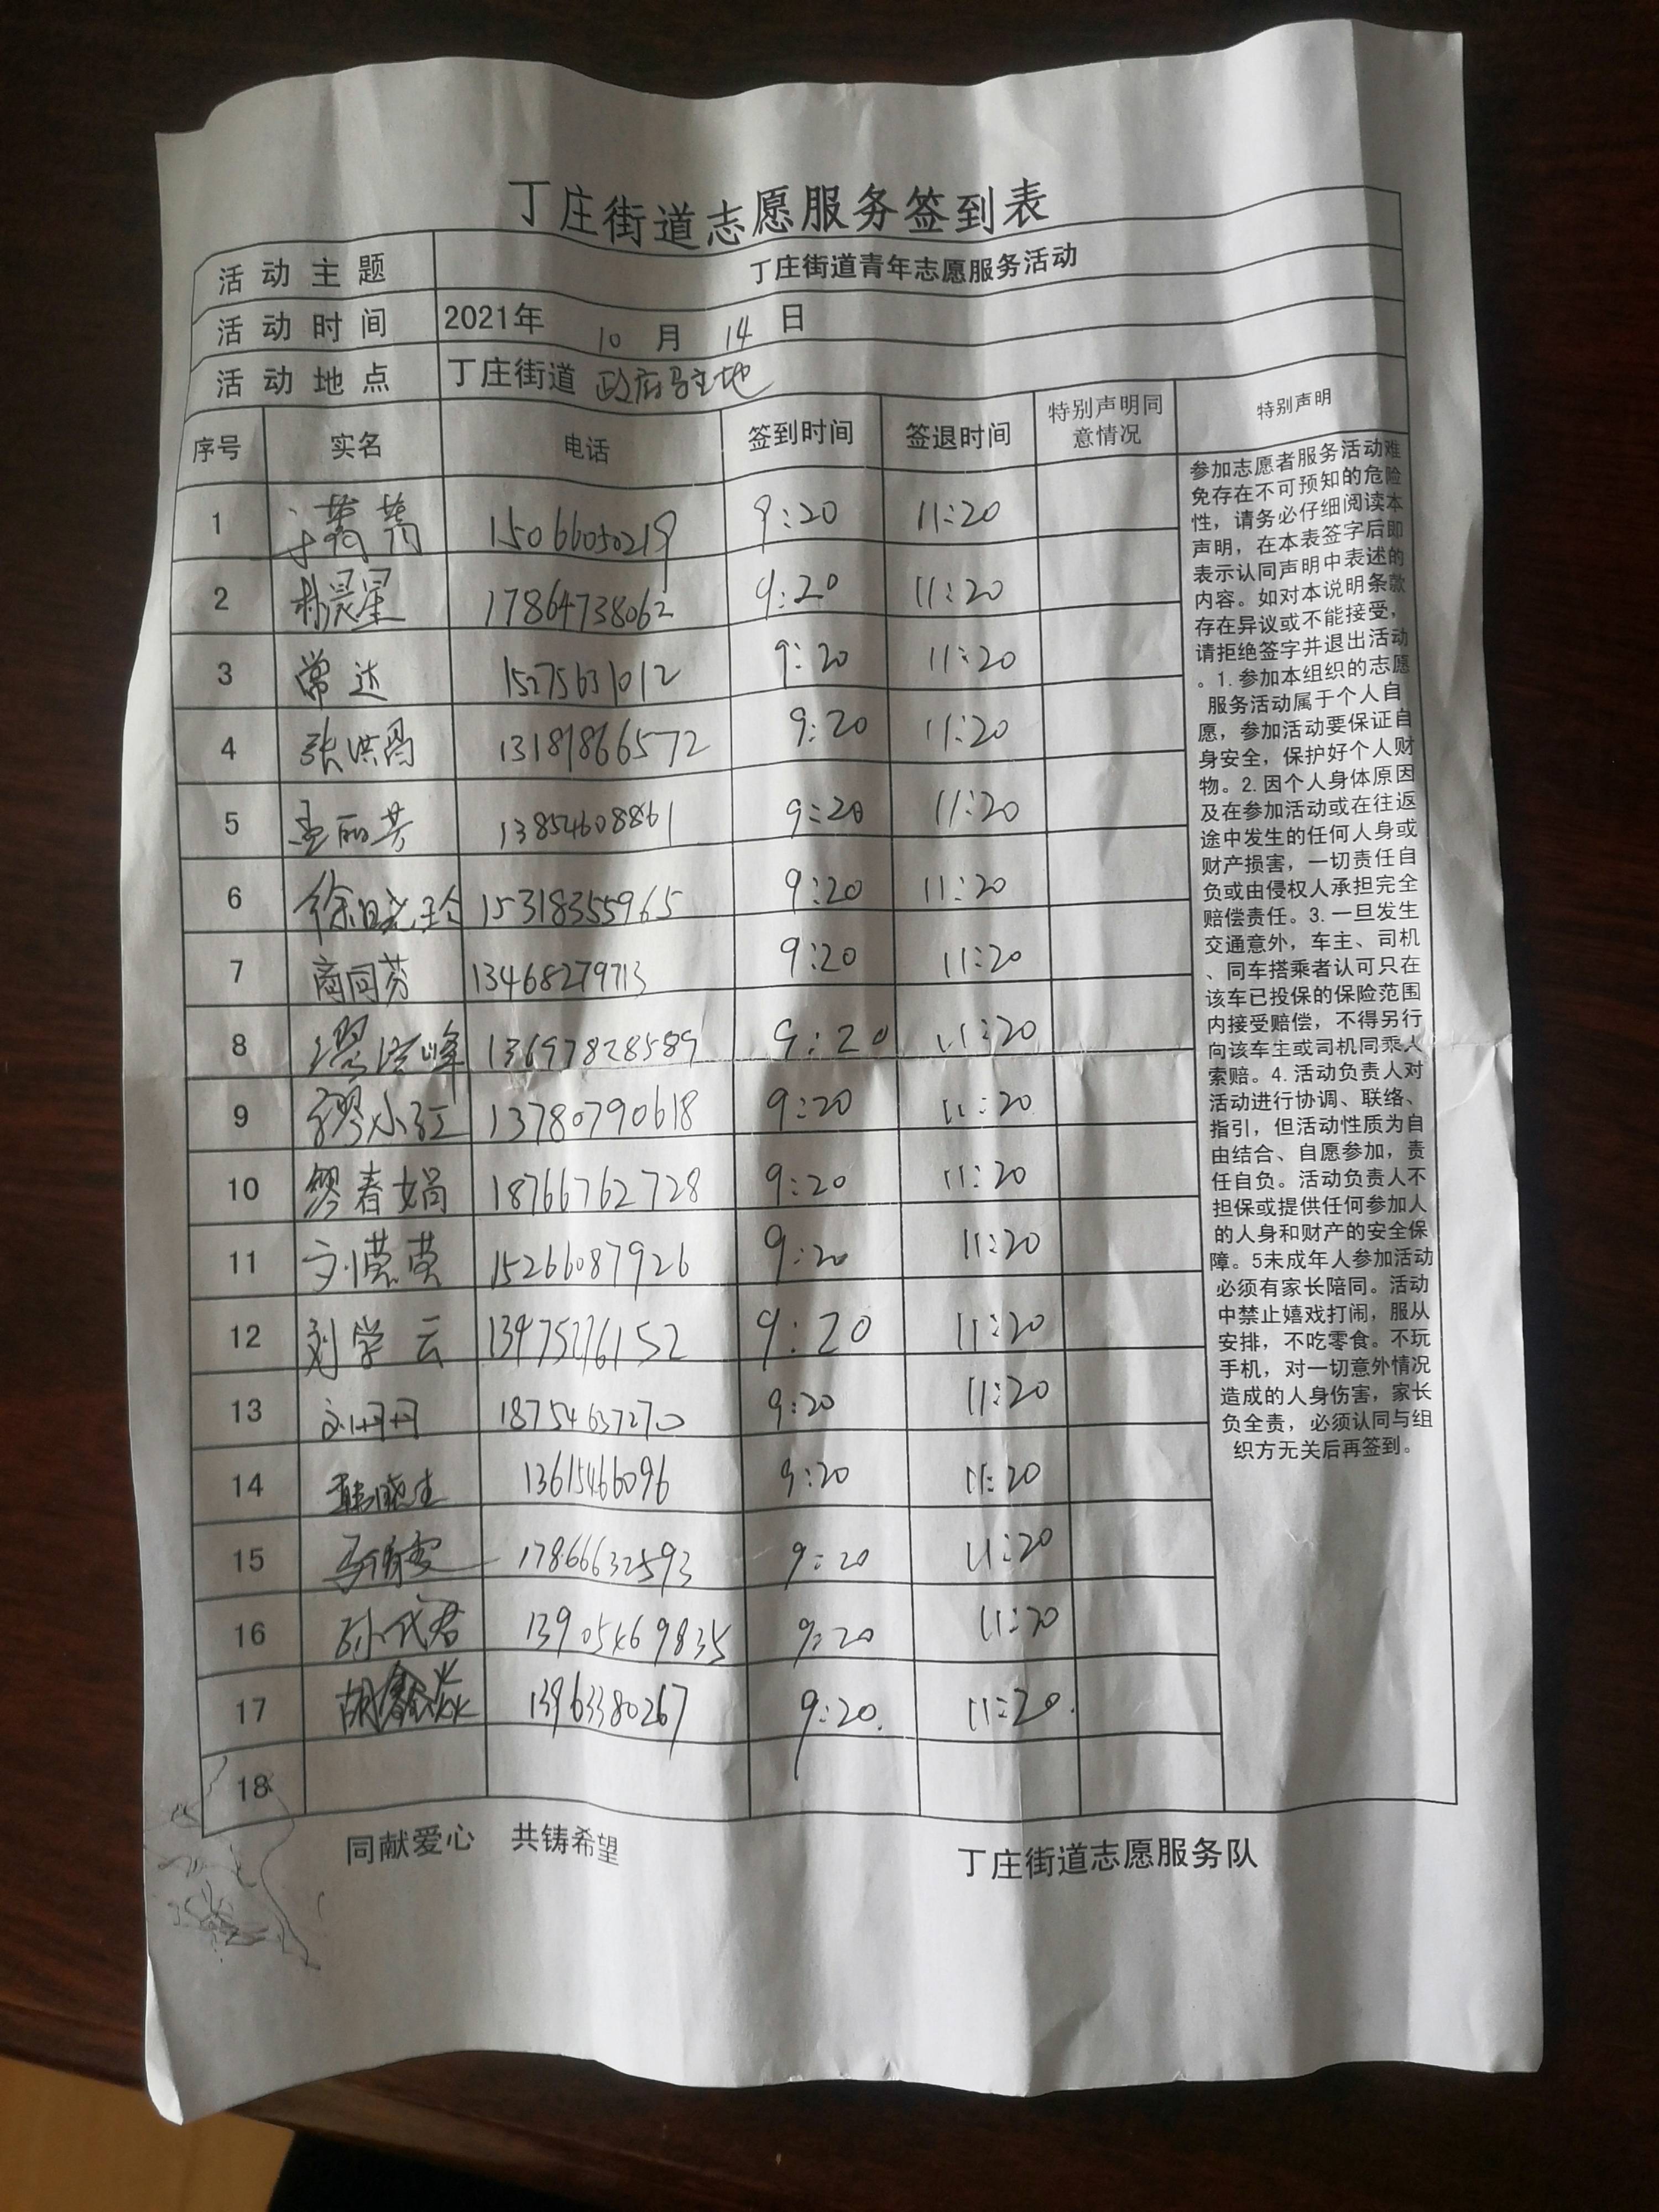 丁庄街道志愿服务签到表
活动主题 丁庄街道青年志愿服务活动
活动时间 2021年 10 月 14 日
活动地点 丁庄街道 政府驻地
序号 实名 电话 签到时间 签退时间 特别声明同意情况 特别声明
1 15066050219 9:20 11:20
2 林晨星 17864738062 9:20 11:20
3 常达 15275631012 9:20 11:20
4 张洪勇 13181866572 9:20 11:20
5 孟丽芳 13854608861 9:20 11:20
6 徐晓玲 15318355965 9:20 11:20
7 商同芬 13468279713 9:20 11:20
8 13697828589 9:20 11:20
9 缪小红 13780790618 9:20 11:20
10 缪春娟 18766762728 9:20 11:20
11 15266087926 9:20 11:20
12 刘学云 13475276152 9:20 11:20
13 刘丹丹 18754637270 9:20 11:20
14 韩晓生 13615466096 9:20 11:20
15 17866632593 9:20 11:20
16 孙代君 13905469835 9:20 11:20
17 胡鑫焱 13963380267 9:20. 11:20.
18
参加志愿者服务活动难
免存在不可预知的危险
性，请务必仔细阅读本
声明，在本表签字后即
表示认同声明中表述的
内容。如对本说明条款
存在异议或不能接受，
请拒绝签字并退出活动
。1.参加本组织的志愿
服务活动属于个人自
愿，参加活动要保证自
身安全，保护好个人财
物。2.因个人身体原因
及在参加活动或在往返
途中发生的任何人身或
财产损害，一切责任自
负或由侵权人承担完全
赔偿责任。3.一旦发生
交通意外，车主、司机
、同车搭乘者认可只在
该车已投保的保险范围
内接受赔偿，不得另行
向该车主或司机同乘人
索赔。4.活动负责人对
活动进行协调、联络、
指引，但活动性质为自
由结合、自愿参加，责
任自负。活动负责人不
担保或提供任何参加人
的人身和财产的安全保
障。5未成年人参加活动
必须有家长陪同。活动
中禁止嬉戏打闹，服从
安排，不吃零食。不玩
手机，对一切意外情况
造成的人身伤害，家长
负全责，必须认同与组
织方无关后再签到。
同献爱心 共铸希望 丁庄街道志愿服务队